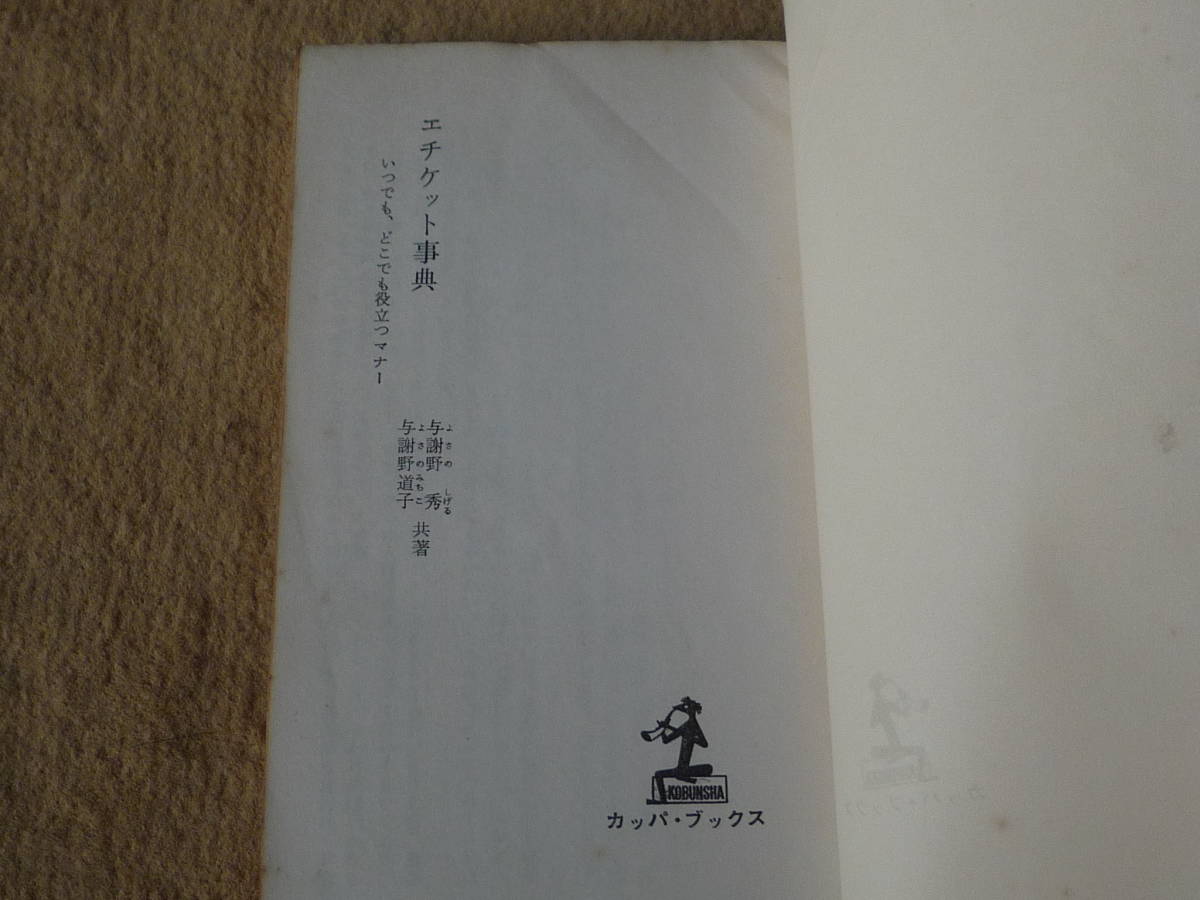 エチケット事典
いつでも、どこでも役立つマナー
よさの しげる
与謝野 秀
よさのみちこ
与謝野道子
共著
KOBUNSHA
カッパ・ブックス